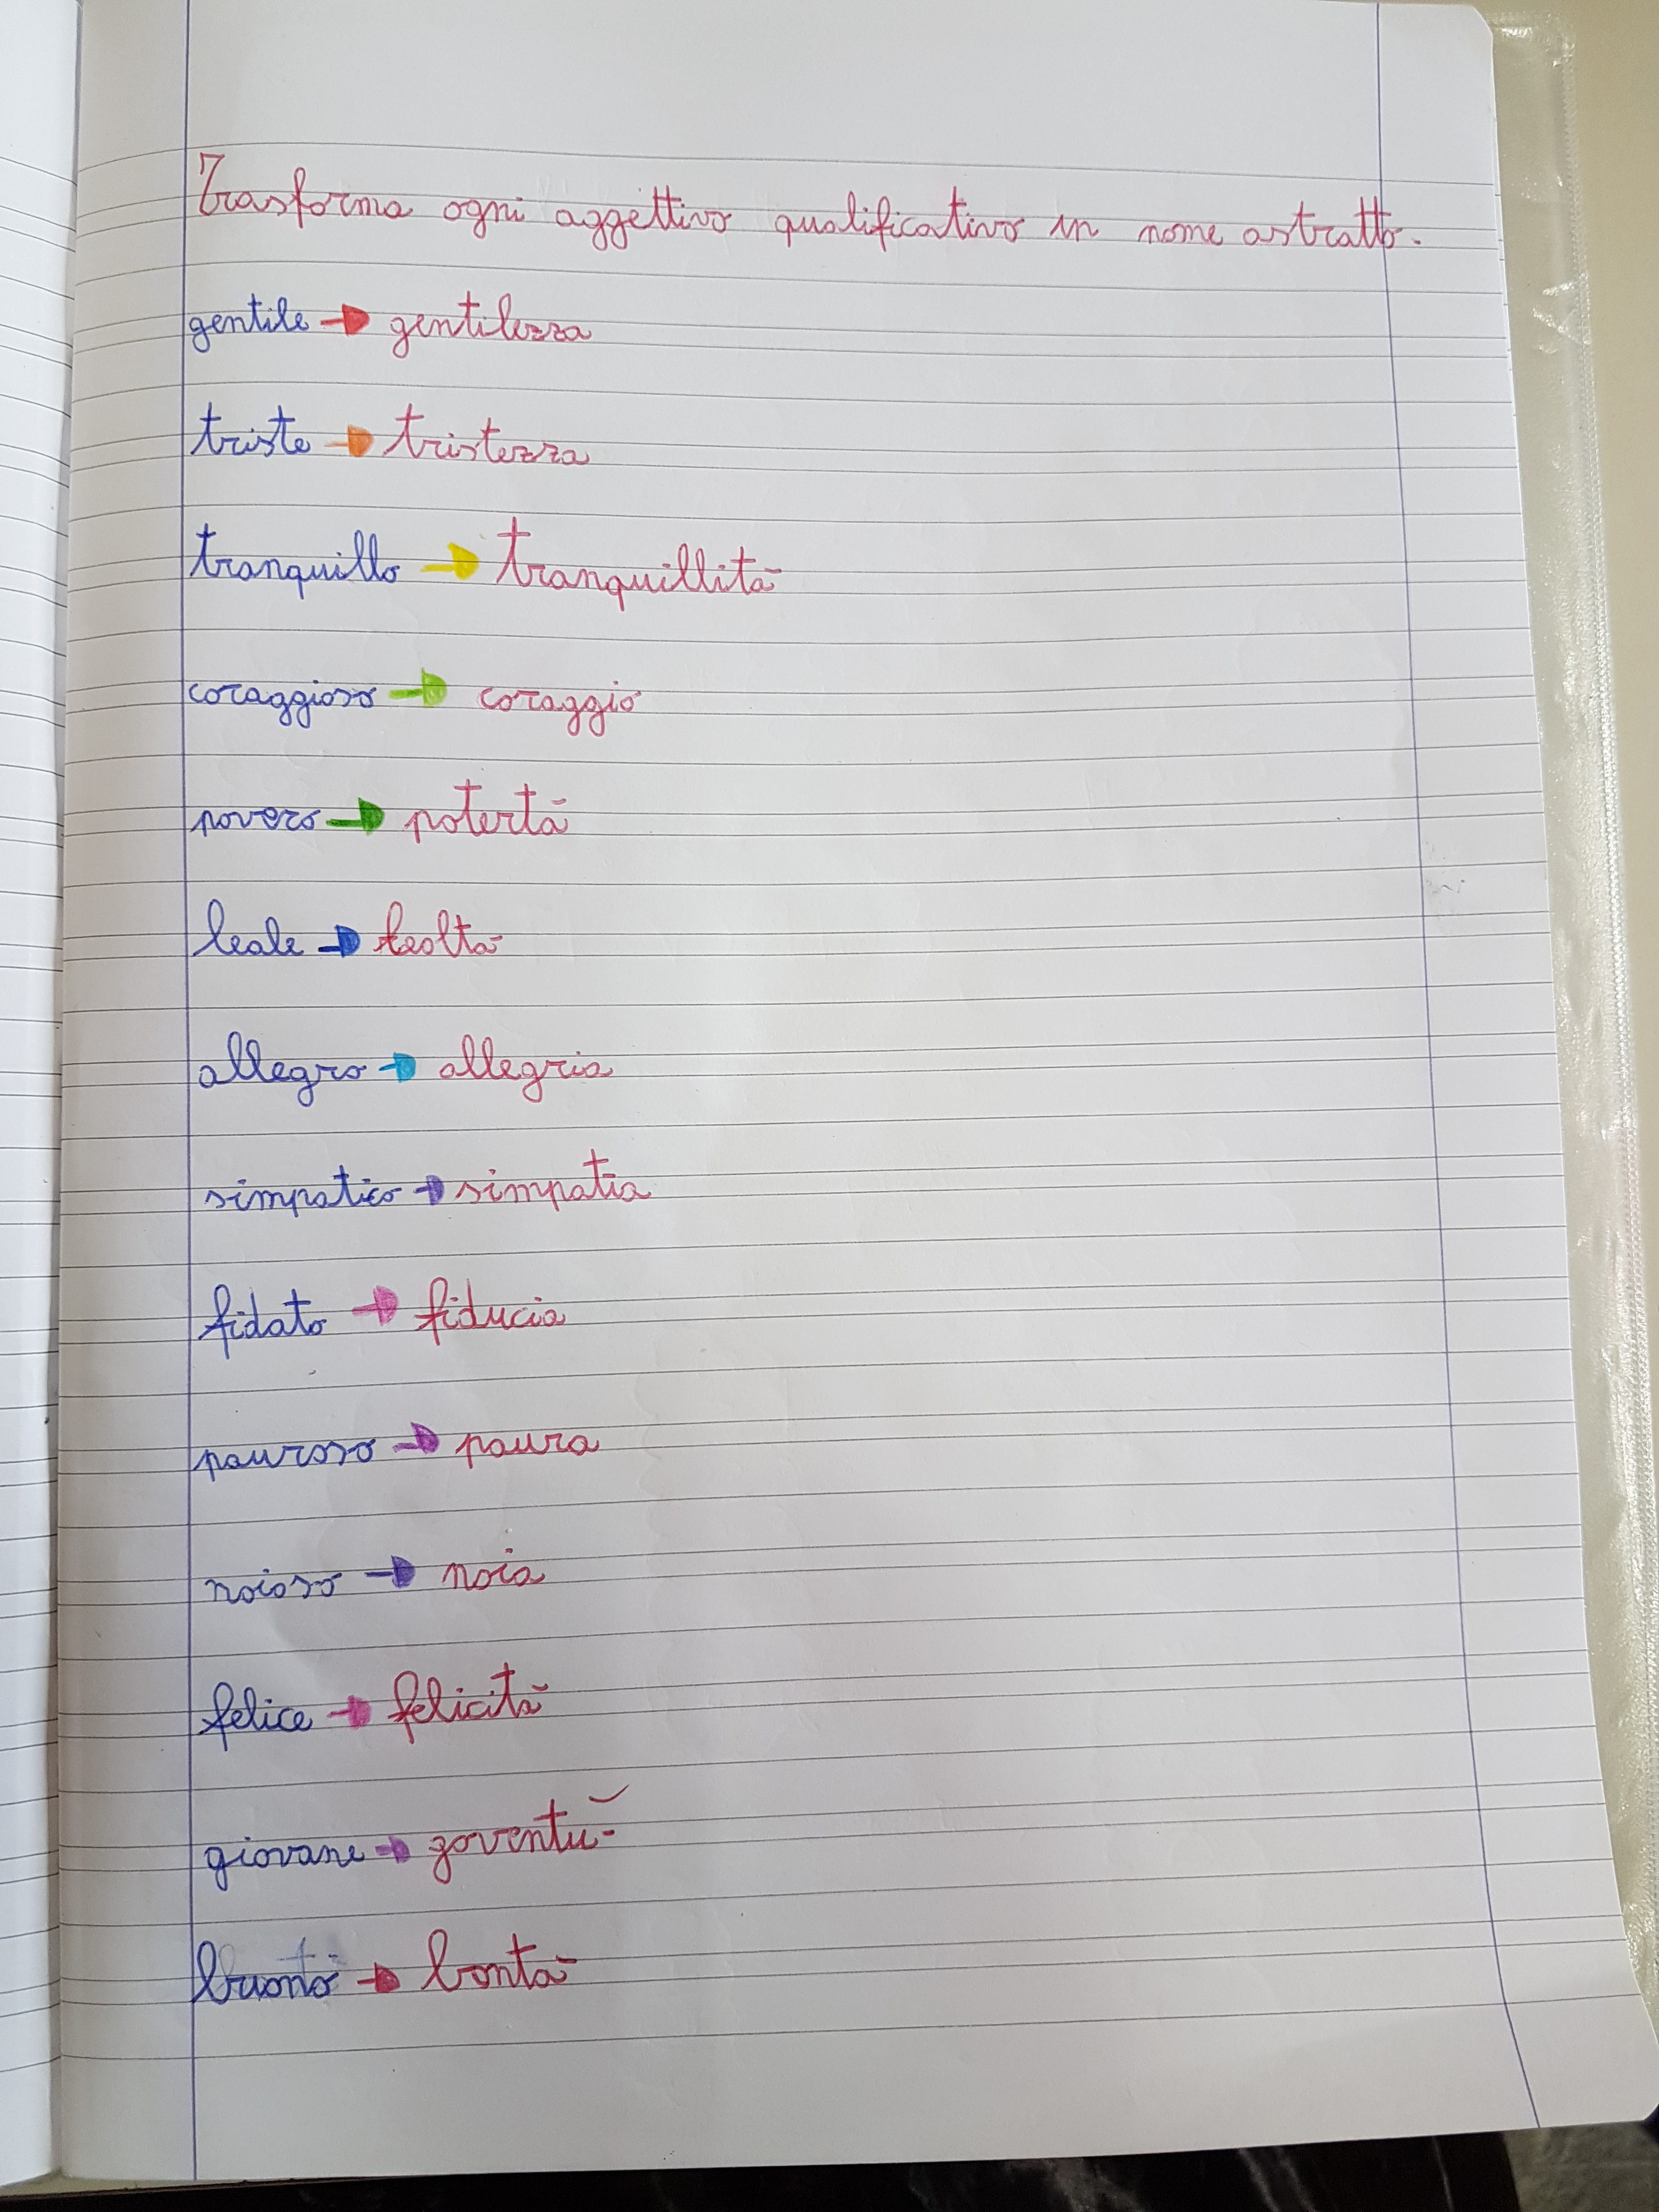 Trasforma ogni aggettivo qualificativo in nome astratto.
gentile → gentilezza
triste → tristezza
tranquillo → tranquillità
coraggioso → coraggio
povero → potertà
leale → lealtà
allegro → allegria
simpatico → simpatia
fidato → fiducia
pauroso → paura
noioso → noia
felice → felicità
giovane → goventù
buono → bontà